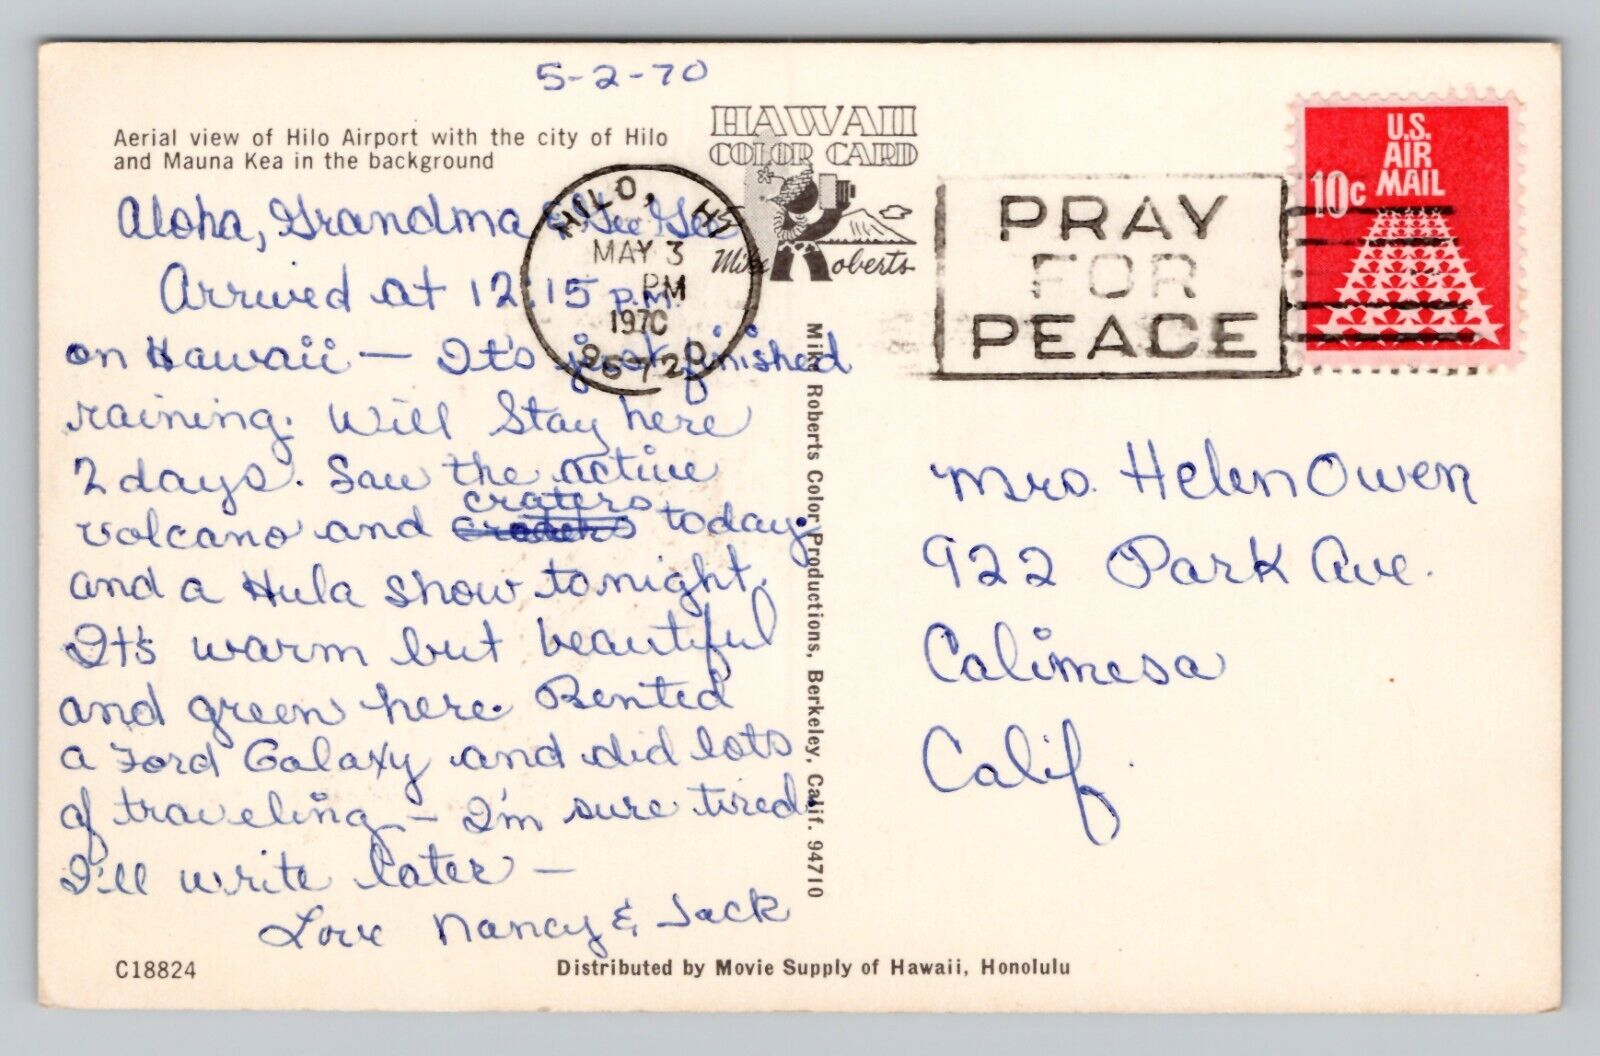 5-2-70
Aerial view of Hilo Airport with the city of Hilo
and Mauna Kea in the background
HAWAII
COLOR CARD
Mike Roberts
HILO, HI
MAY 3
PM
1970
96720
PRAY
FOR
PEACE
U.S.
AIR
MAIL
10c
Aloha, Grandma & Gee Gee
Arrived at 12:15 p.m.
on Hawaii — It's just finished
raining. Will Stay here
2 days. Saw the active
craters
volcano and today.
and a Hula show tonight.
It's warm but beautiful
and green here. Rented
a Ford Galaxy and did lots
of traveling — I'm sure tired.
I'll write later —
Love Nancy & Jack
Mike Roberts Color Productions, Berkeley, Calif. 94710
Mrs. Helen Owen
922 Park Ave.
Calimesa
Calif.
C18824
Distributed by Movie Supply of Hawaii, Honolulu